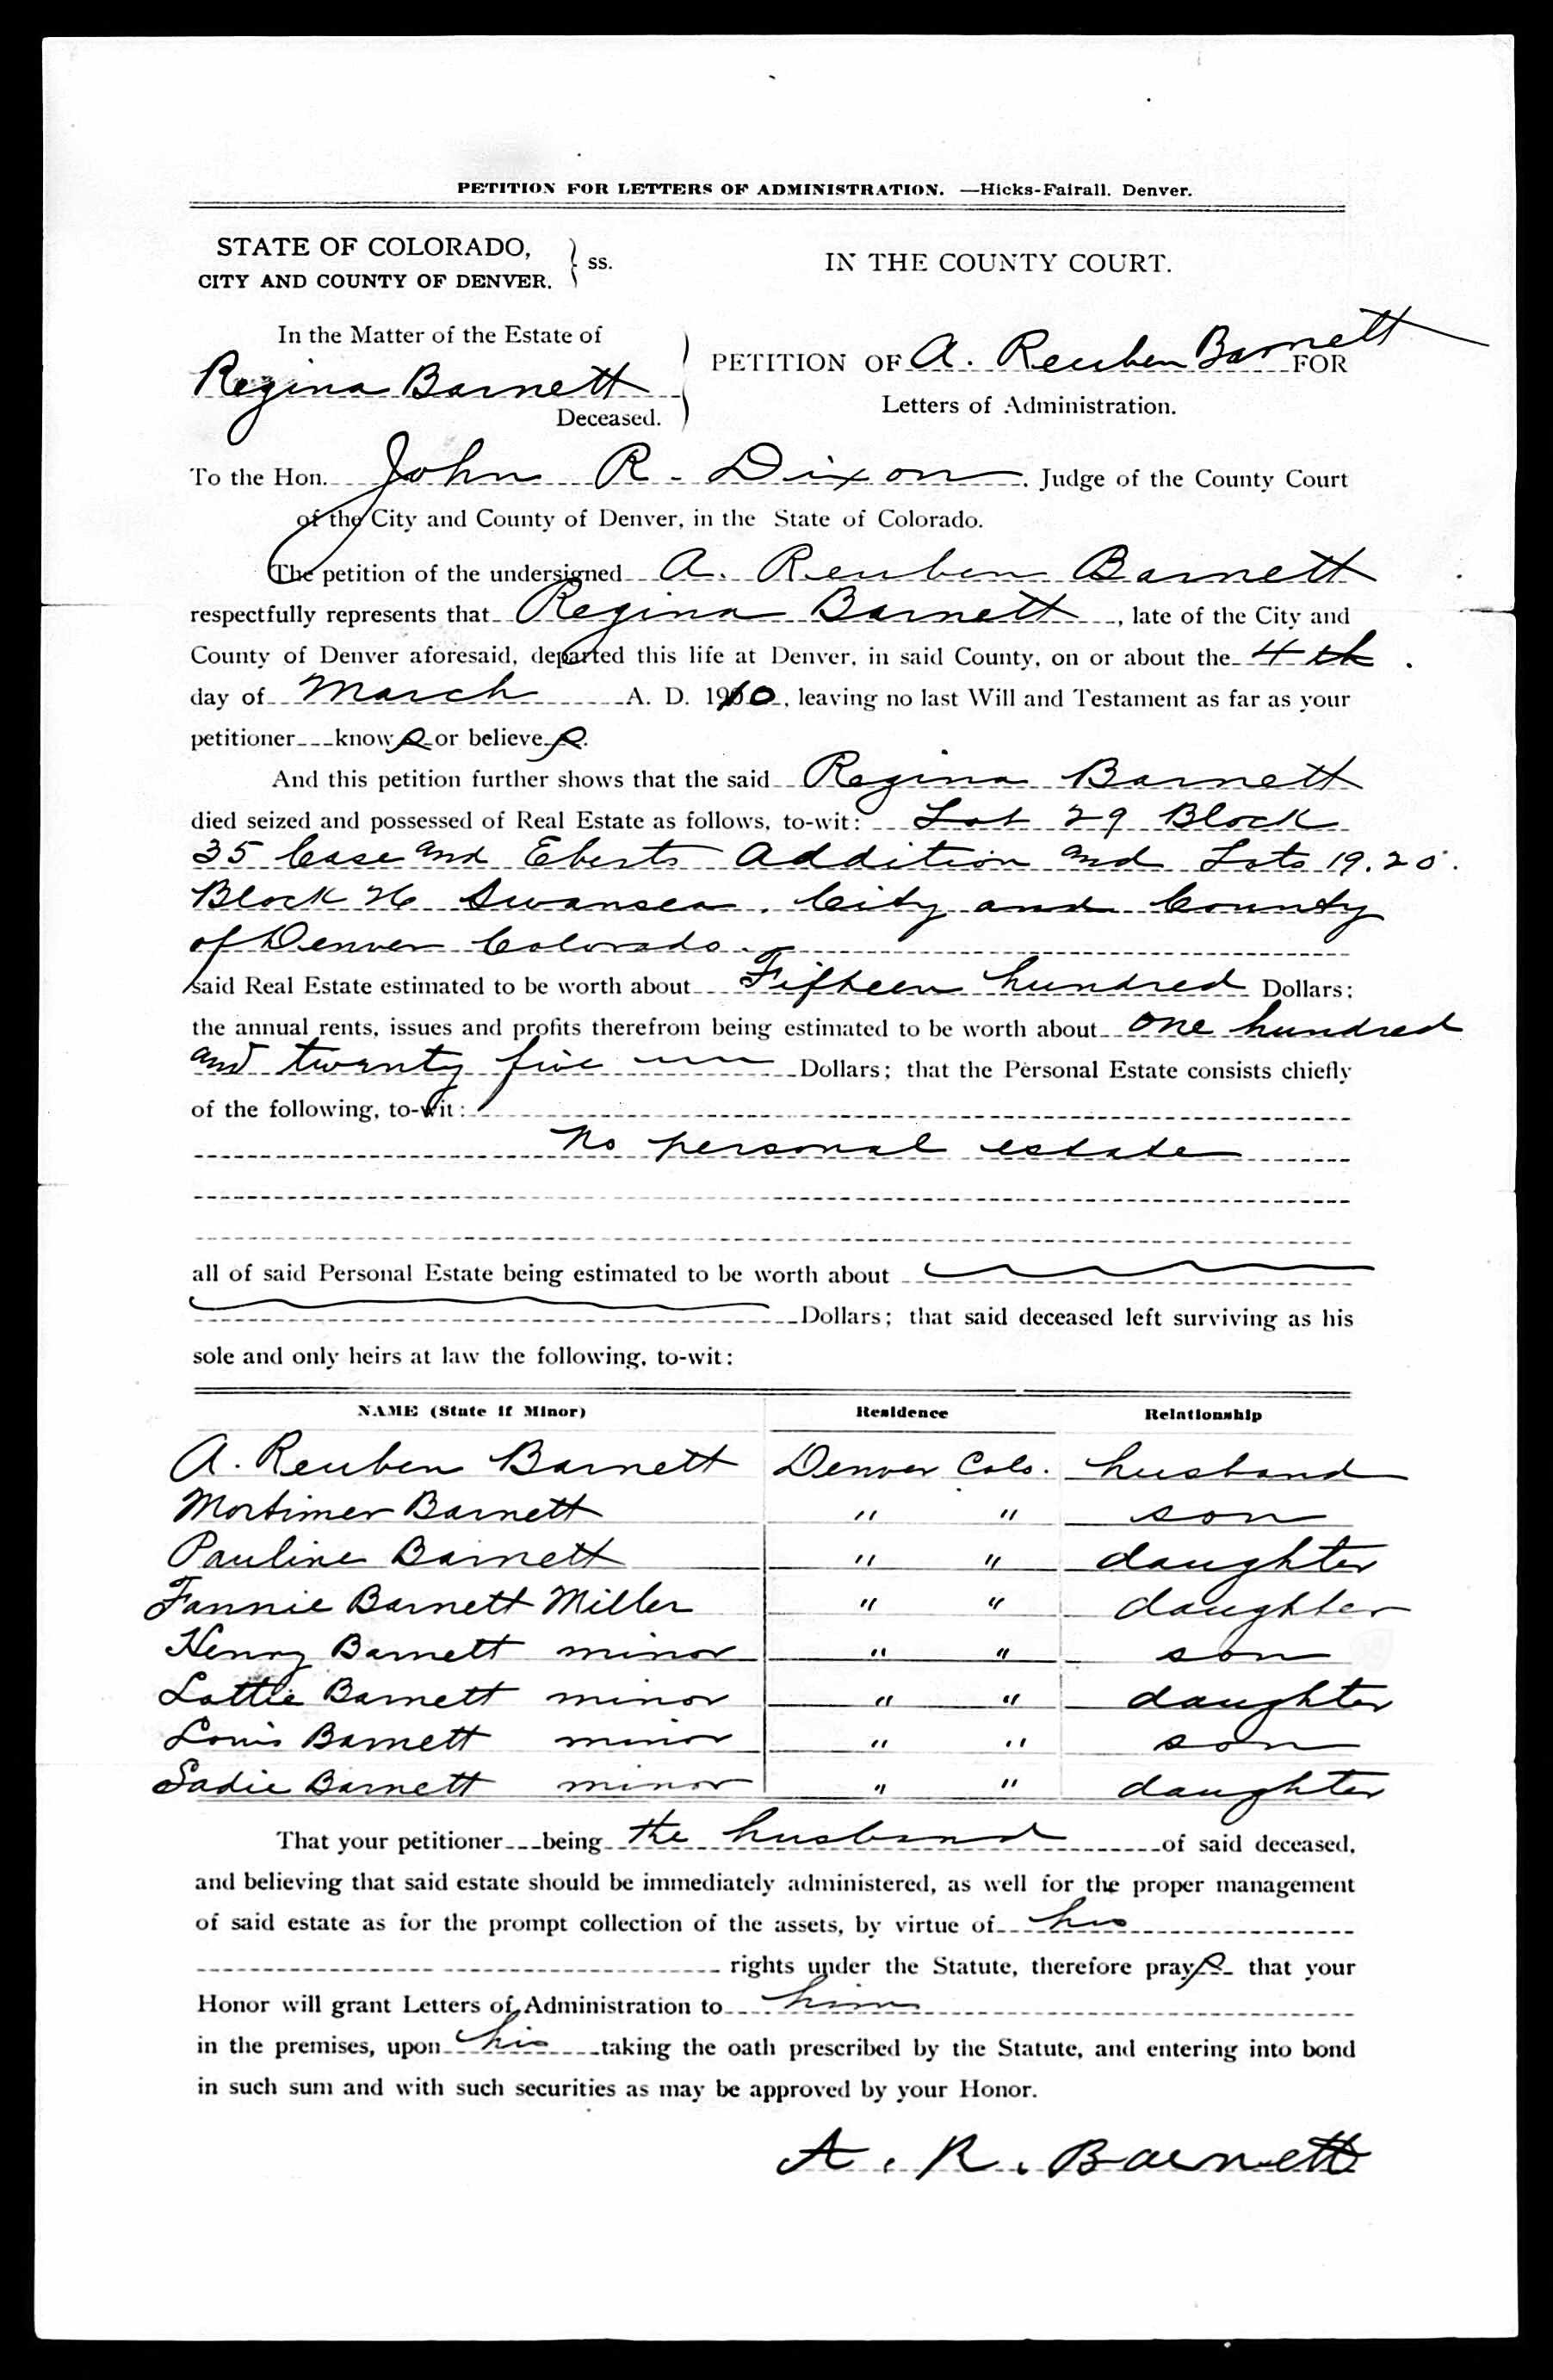 PETITION FOR LETTERS OF ADMINISTRATION. —Hicks-Fairall. Denver.
STATE OF COLORADO,
CITY AND COUNTY OF DENVER. } ss.
IN THE COUNTY COURT.
In the Matter of the Estate of
Regina Barnett
Deceased.
PETITION OF A. Reuben Barnett FOR
Letters of Administration.
To the Hon. John R. Dixon, Judge of the County Court
of the City and County of Denver, in the State of Colorado.
The petition of the undersigned A. Reuben Barnett
respectfully represents that Regina Barnett, late of the City and
County of Denver aforesaid, departed this life at Denver, in said County, on or about the 4th
day of March A. D. 1910, leaving no last Will and Testament as far as your
petitioner knows or believes.
And this petition further shows that the said Regina Barnett
died seized and possessed of Real Estate as follows, to-wit: Lot 29 Block
35 Case and Eberts Addition and Lots 19.20.
Block 26 Swansea. City and County
of Denver Colorado.
said Real Estate estimated to be worth about Fifteen hundred Dollars;
the annual rents, issues and profits therefrom being estimated to be worth about one hundred
and twenty five Dollars; that the Personal Estate consists chiefly
of the following, to-wit:
no personal estate
all of said Personal Estate being estimated to be worth about
Dollars; that said deceased left surviving as his
sole and only heirs at law the following, to-wit:
NAME (State if Minor) Residence Relationship
A. Reuben Barnett Denver Colo. husband
Mortimer Barnett " " son
Pauline Barnett " " daughter
Fannie Barnett Miller " " daughter
Henry Barnett minor " " son
Lottie Barnett minor " " daughter
Louis Barnett minor " " son
Sadie Barnett minor " " daughter
That your petitioner being the husband of said deceased,
and believing that said estate should be immediately administered, as well for the proper management
of said estate as for the prompt collection of the assets, by virtue of his
rights under the Statute, therefore prays that your
Honor will grant Letters of Administration to him
in the premises, upon his taking the oath prescribed by the Statute, and entering into bond
in such sum and with such securities as may be approved by your Honor.
A. R. Barnett